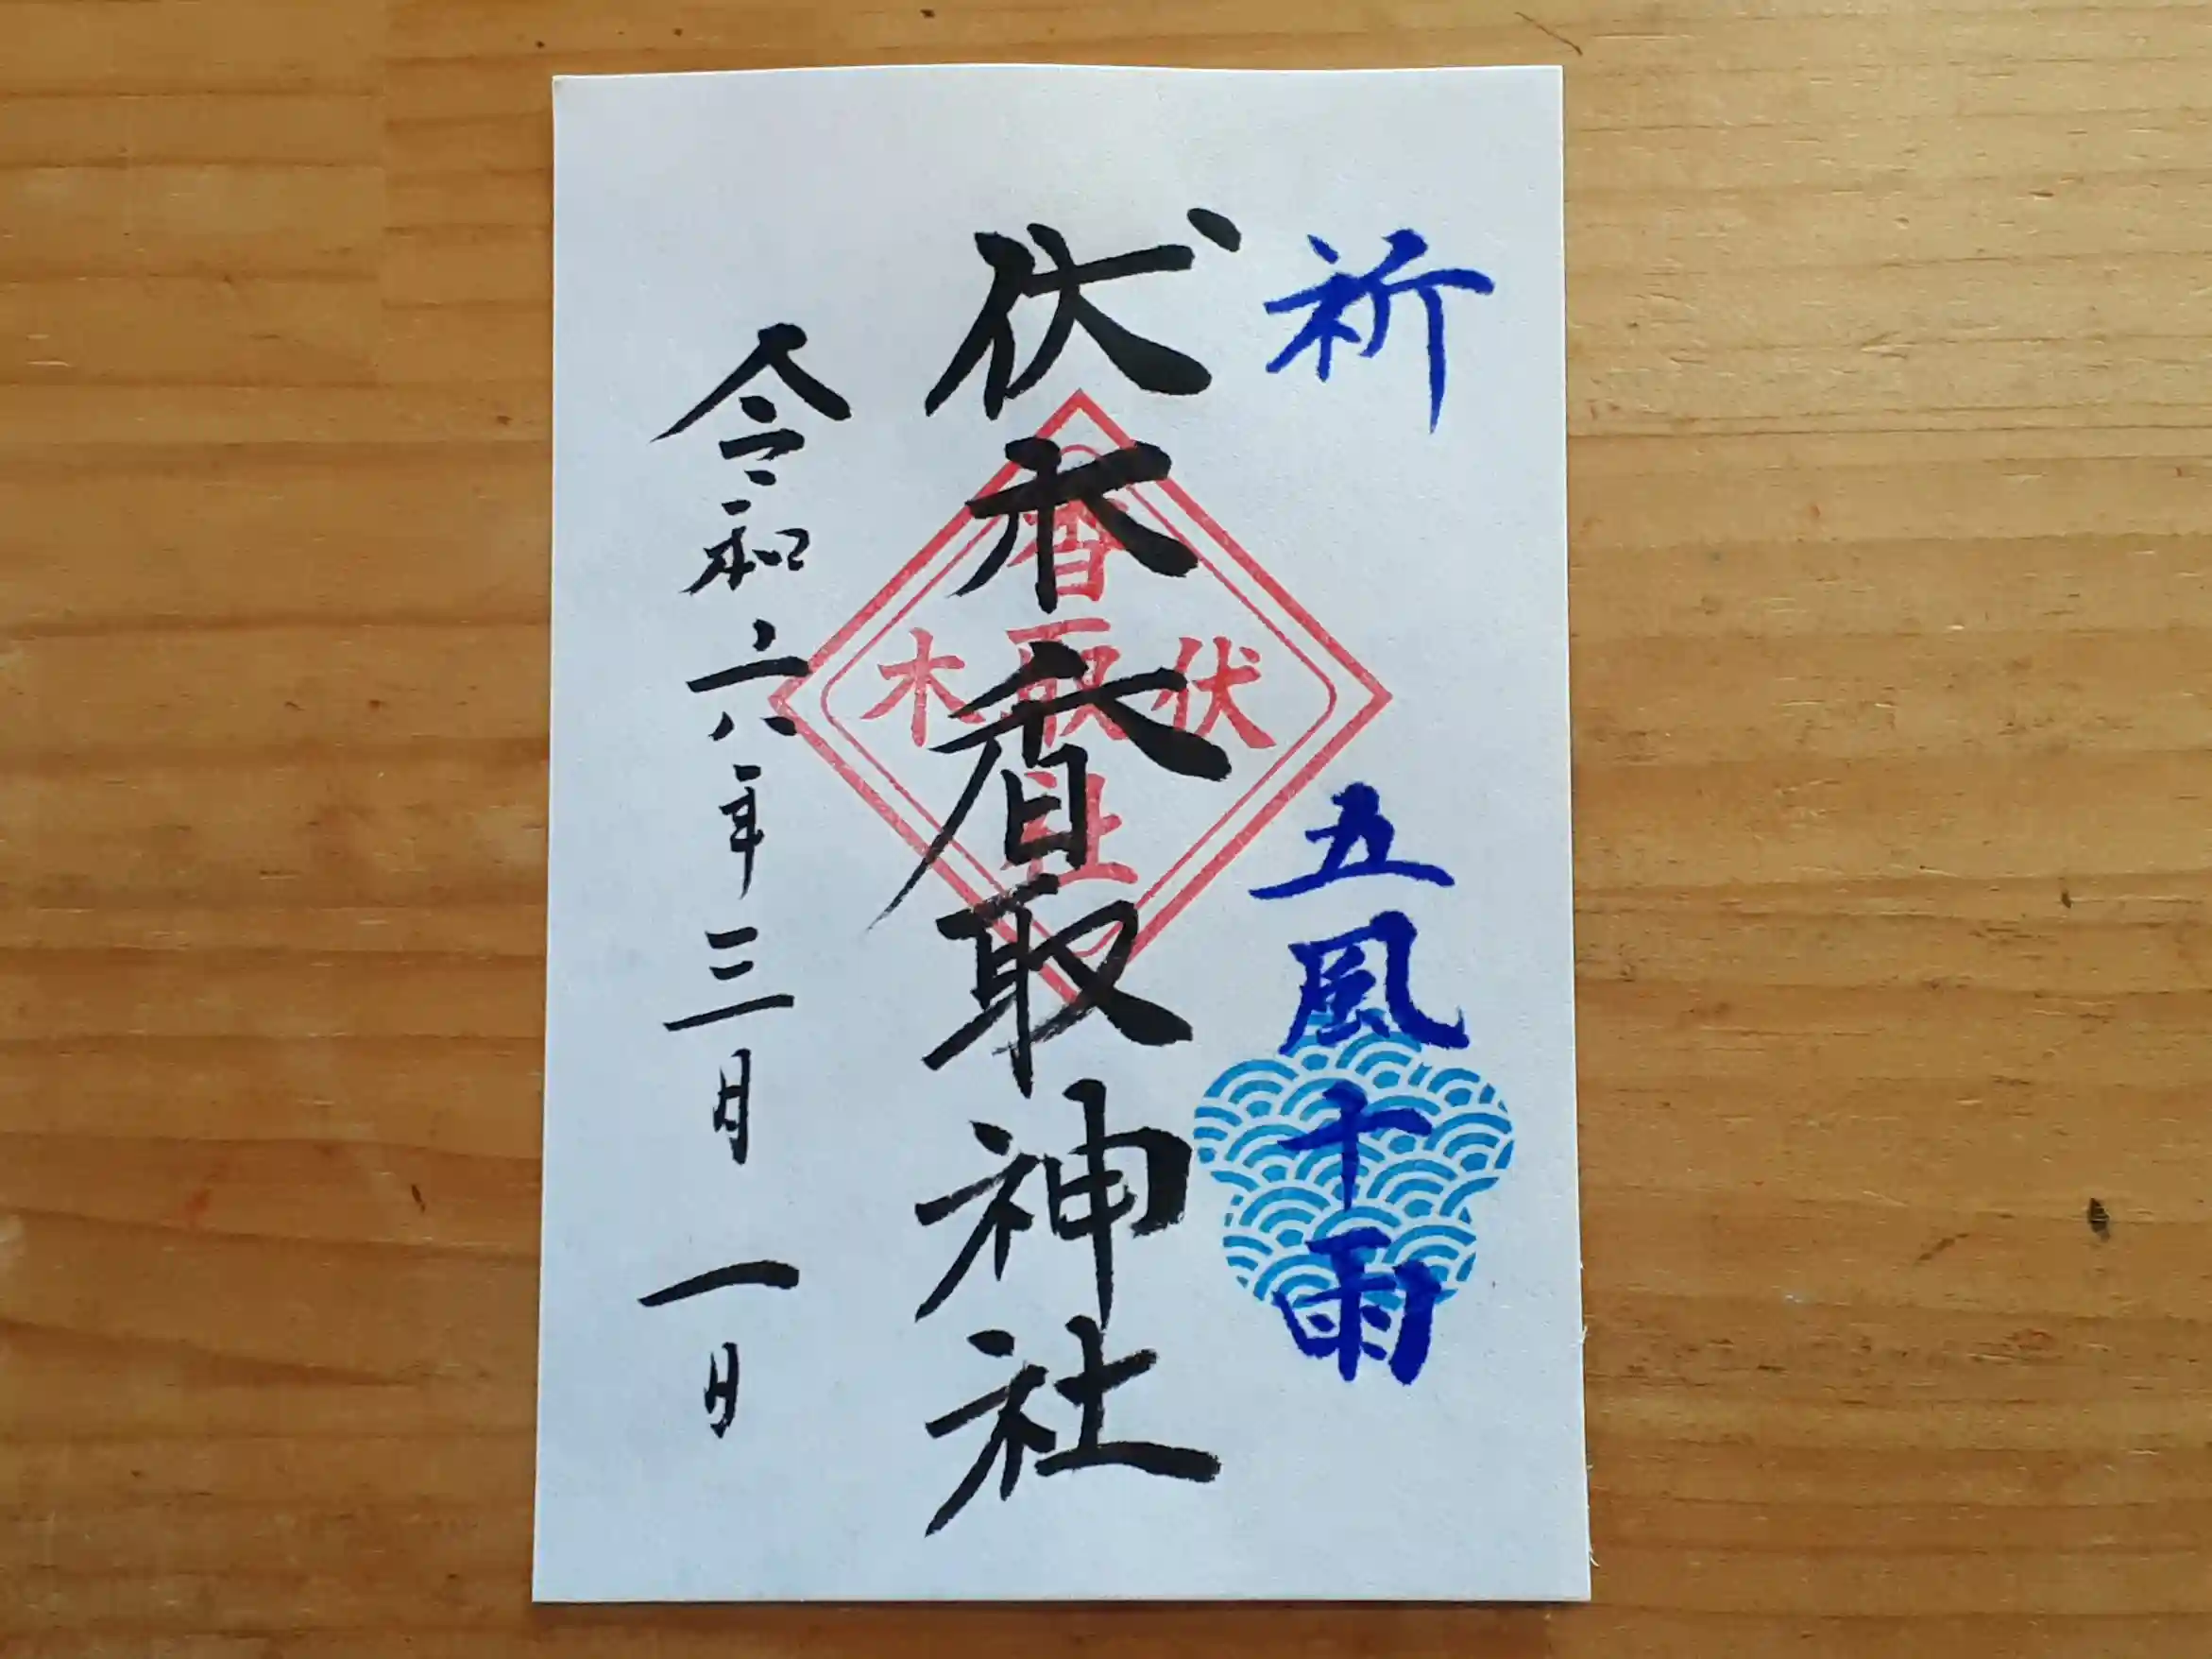 祈 五風十雨
伏木香取神社
香取社
伏木
令和六年三月一日